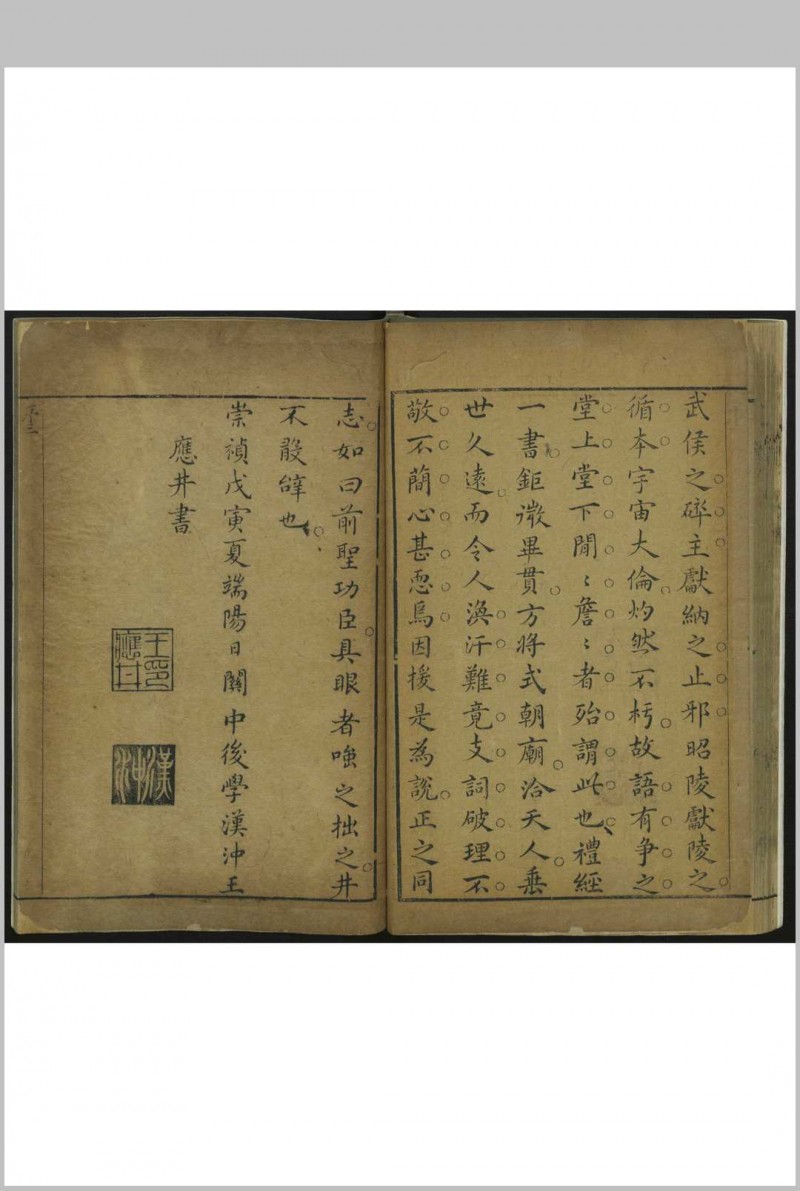 武侯之碑主獻納之止邪昭陵獻陵之
循本宇宙大倫灼然不朽故語有争之
堂上堂下閒〻詹〻者殆謂此也禮經
一書鉅微畢貫方將式朝廟洽天人垂
世久遠而令人渙汗難竟支詞破理不
敬不簡心甚恧焉因援是為説正之同
志如曰前聖功臣具眼者嗤之拙之井
不骰辥也
崇禎戊寅夏端陽日關中後學漢沖王
應井書
王應井印
漢沖